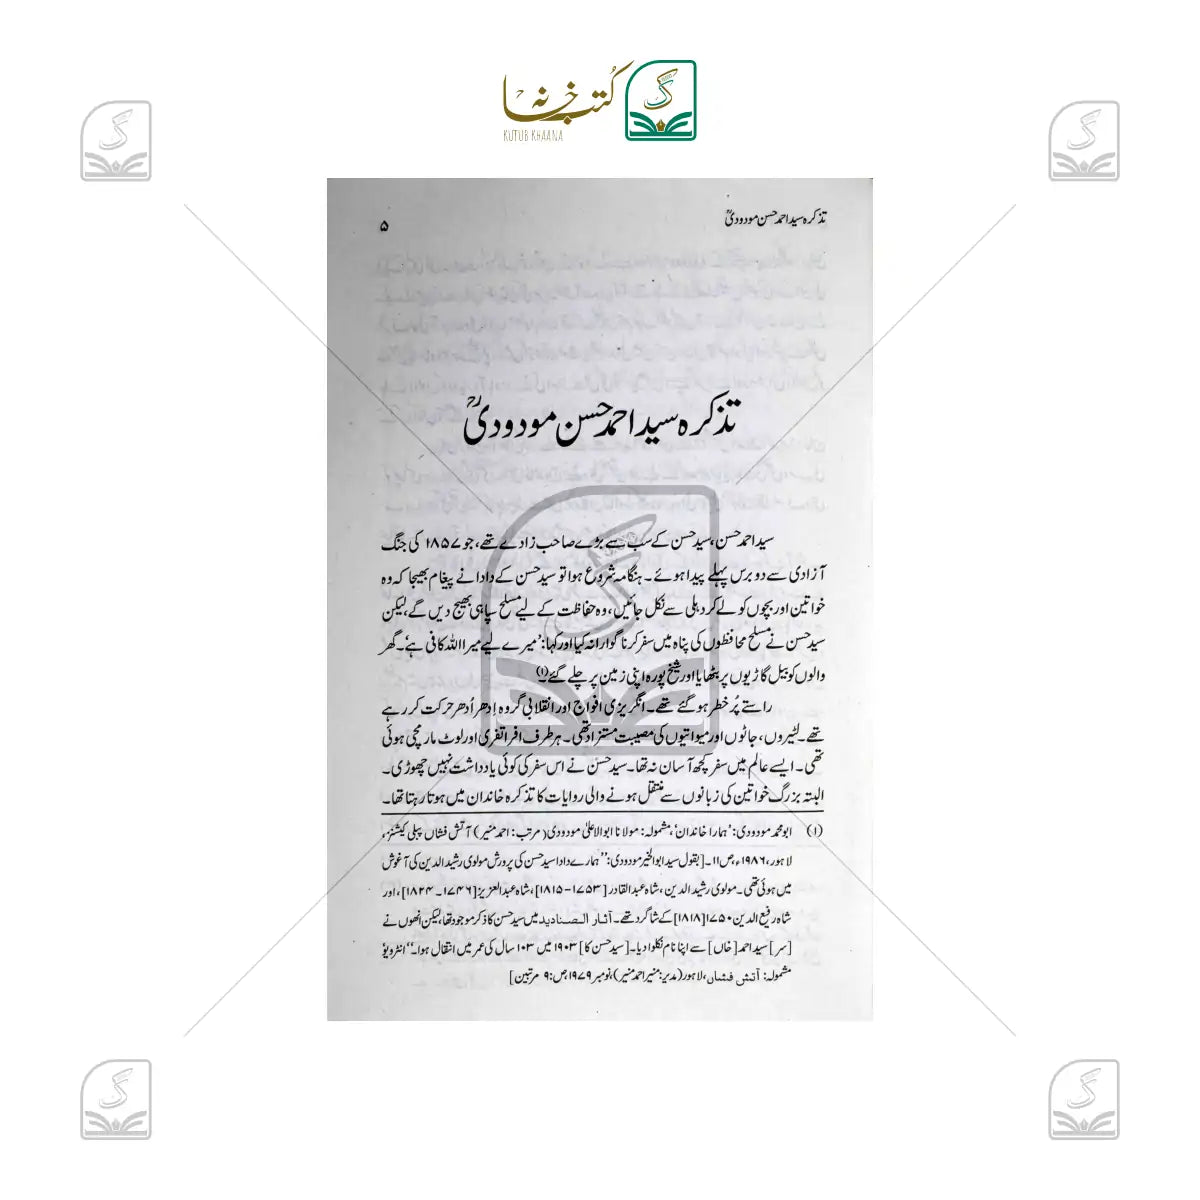 کتب خانہ
KUTUB KHAANA
تذکرہ سید احمد حسن مودودیؒ
۵
تذکرہ سید احمد حسن مودودیؒ
سید احمد حسن، سید حسن کے سب سے بڑے صاحب زادے تھے، جو ۱۸۵۷ کی جنگ
آزادی سے دو برس پہلے پیدا ہوئے۔ ہنگامہ شروع ہوا تو سید حسن کے دادا نے پیغام بھیجا کہ وہ
خواتین اور بچوں کو لے کر دہلی سے نکل جائیں، وہ حفاظت کے لیے مسلح سپاہی بھیج دیں گے، لیکن
سید حسن نے مسلح محافظوں کی پناہ میں سفر کرنا گوارا نہ کیا اور کہا: ’میرے لیے میرا اللہ کافی ہے‘۔ گھر
والوں کو بیل گاڑیوں پر بٹھایا اور شیخ پورہ اپنی زمین پر چلے گئے۔(۱)
راستے پُر خطر ہو گئے تھے۔ انگریزی افواج اور انقلابی گروہ اِدھر اُدھر حرکت کر رہے
تھے۔ لٹیروں، جاٹوں اور میواتیوں کی مصیبت مستزاد تھی۔ ہر طرف افراتفری اور لوٹ مار مچی ہوئی
تھی۔ ایسے عالم میں سفر کچھ آسان نہ تھا۔ سید حسن نے اس سفر کی کوئی یادداشت نہیں چھوڑی۔
البتہ بزرگ خواتین کی زبانوں سے منتقل ہونے والی روایات کا تذکرہ خاندان میں ہوتا رہتا تھا۔
(۱) ابو محمد مودودی: ’ہمارا خاندان‘، مشمولہ: مولانا ابوالاعلیٰ مودودی (مرتب: احمد منیر) آتش فشاں پبلی کیشنز،
لاہور، ۱۹۸۶ء، ص ۱۱۔ [بقول سید ابوالخیر مودودی: ’’ہمارے دادا سید حسن کی پرورش مولوی رشید الدین کی آغوش
میں ہوئی تھی۔ مولوی رشید الدین، شاہ عبدالقادر [۱۷۵۳-۱۸۱۵]، شاہ عبدالعزیز [۱۷۴۶۔۱۸۲۴]، اور
شاہ رفیع الدین ۱۷۵۰[۱۸۱۸] کے شاگرد تھے۔ آثار الصنادید میں سید حسن کا ذکر موجود تھا، لیکن انھوں نے
[سر] سید احمد [خاں] سے اپنا نام نکلوا دیا۔ [سید حسن کا] ۱۹۰۳ میں ۱۰۳ سال کی عمر میں انتقال ہوا۔‘‘ انٹرویو
مشمولہ: آتش فشاں، لاہور (مدیر: منیر احمد منیر)، نومبر ۱۹۷۹، ص: ۹ مرتبین]